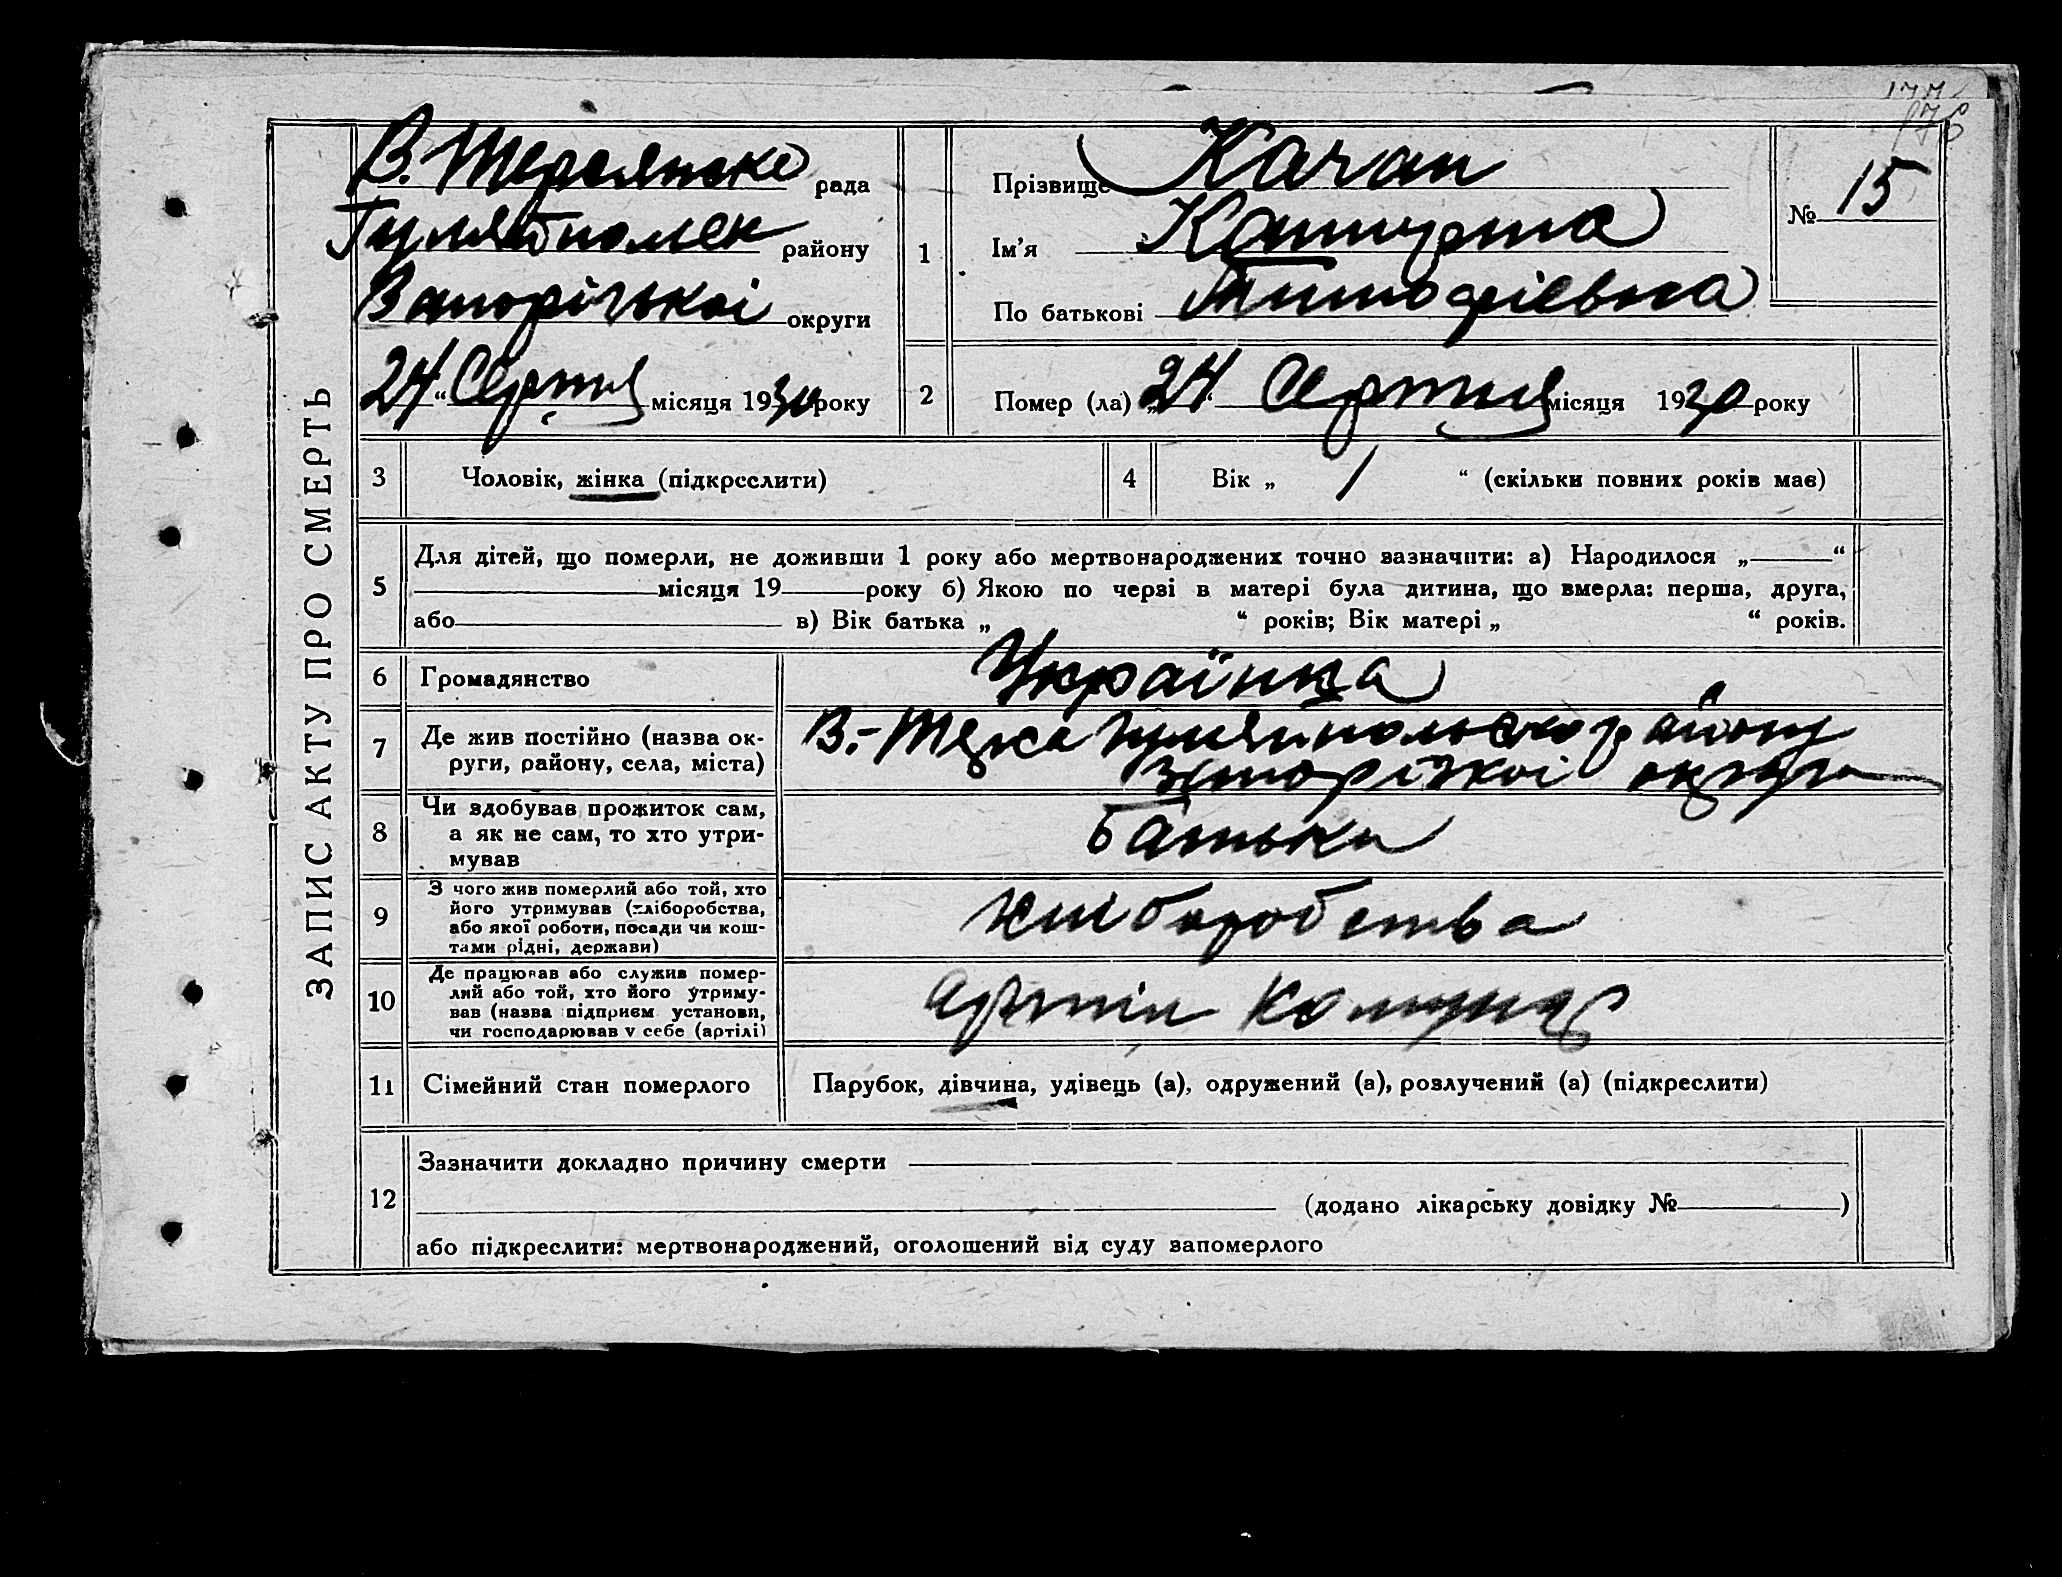 176
ЗАПИС АКТУ ПРО СМЕРТЬ
В. Терсянське рада
Гуляйполек району
Запорізької округи
24 “ Серпня місяця 1930 року
1
Прізвище Качан
Ім’я
По батькові Тимофієвна
№ 15
2 Помер (ла) „ 24 “ Серпня місяця 1930 року
3 Чоловік, жінка (підкреслити)
4 Вік „ 1 “ (скільки повних років має)
5 Для дітей, що померли, не доживши 1 року або мертвонароджених точно зазначити: а) Народилося „ “
місяця 19 року б) Якою по черзі в матері була дитина, що вмерла: перша, друга,
або в) Вік батька „ “ років; Вік матері „ “ років.
6 Громадянство Українка
7 Де жив постійно (назва ок-
руги, району, села, міста)
В.-Терса Гуляйпольского району
Запорізкої округи
8 Чи здобував прожиток сам,
а як не сам, то хто утри-
мував
батьки
9 З чого жив померлий або той, хто
його утримував (хліборобства,
або якої роботи, посади чи кош-
тами рідні, держави)
хліборобства
10 Де працював або служив помер-
лий або той, хто його утриму-
вав (назва підприєм установи,
чи господарював у себе (артілі)
артіл Комунар
11 Сімейний стан померлого Парубок, дівчина, удівець (а), одружений (а), розлучений (а) (підкреслити)
12 Зазначити докладно причину смерти
(додано лікарську довідку № )
або підкреслити: мертвонароджений, оголошений від суду запомерлого